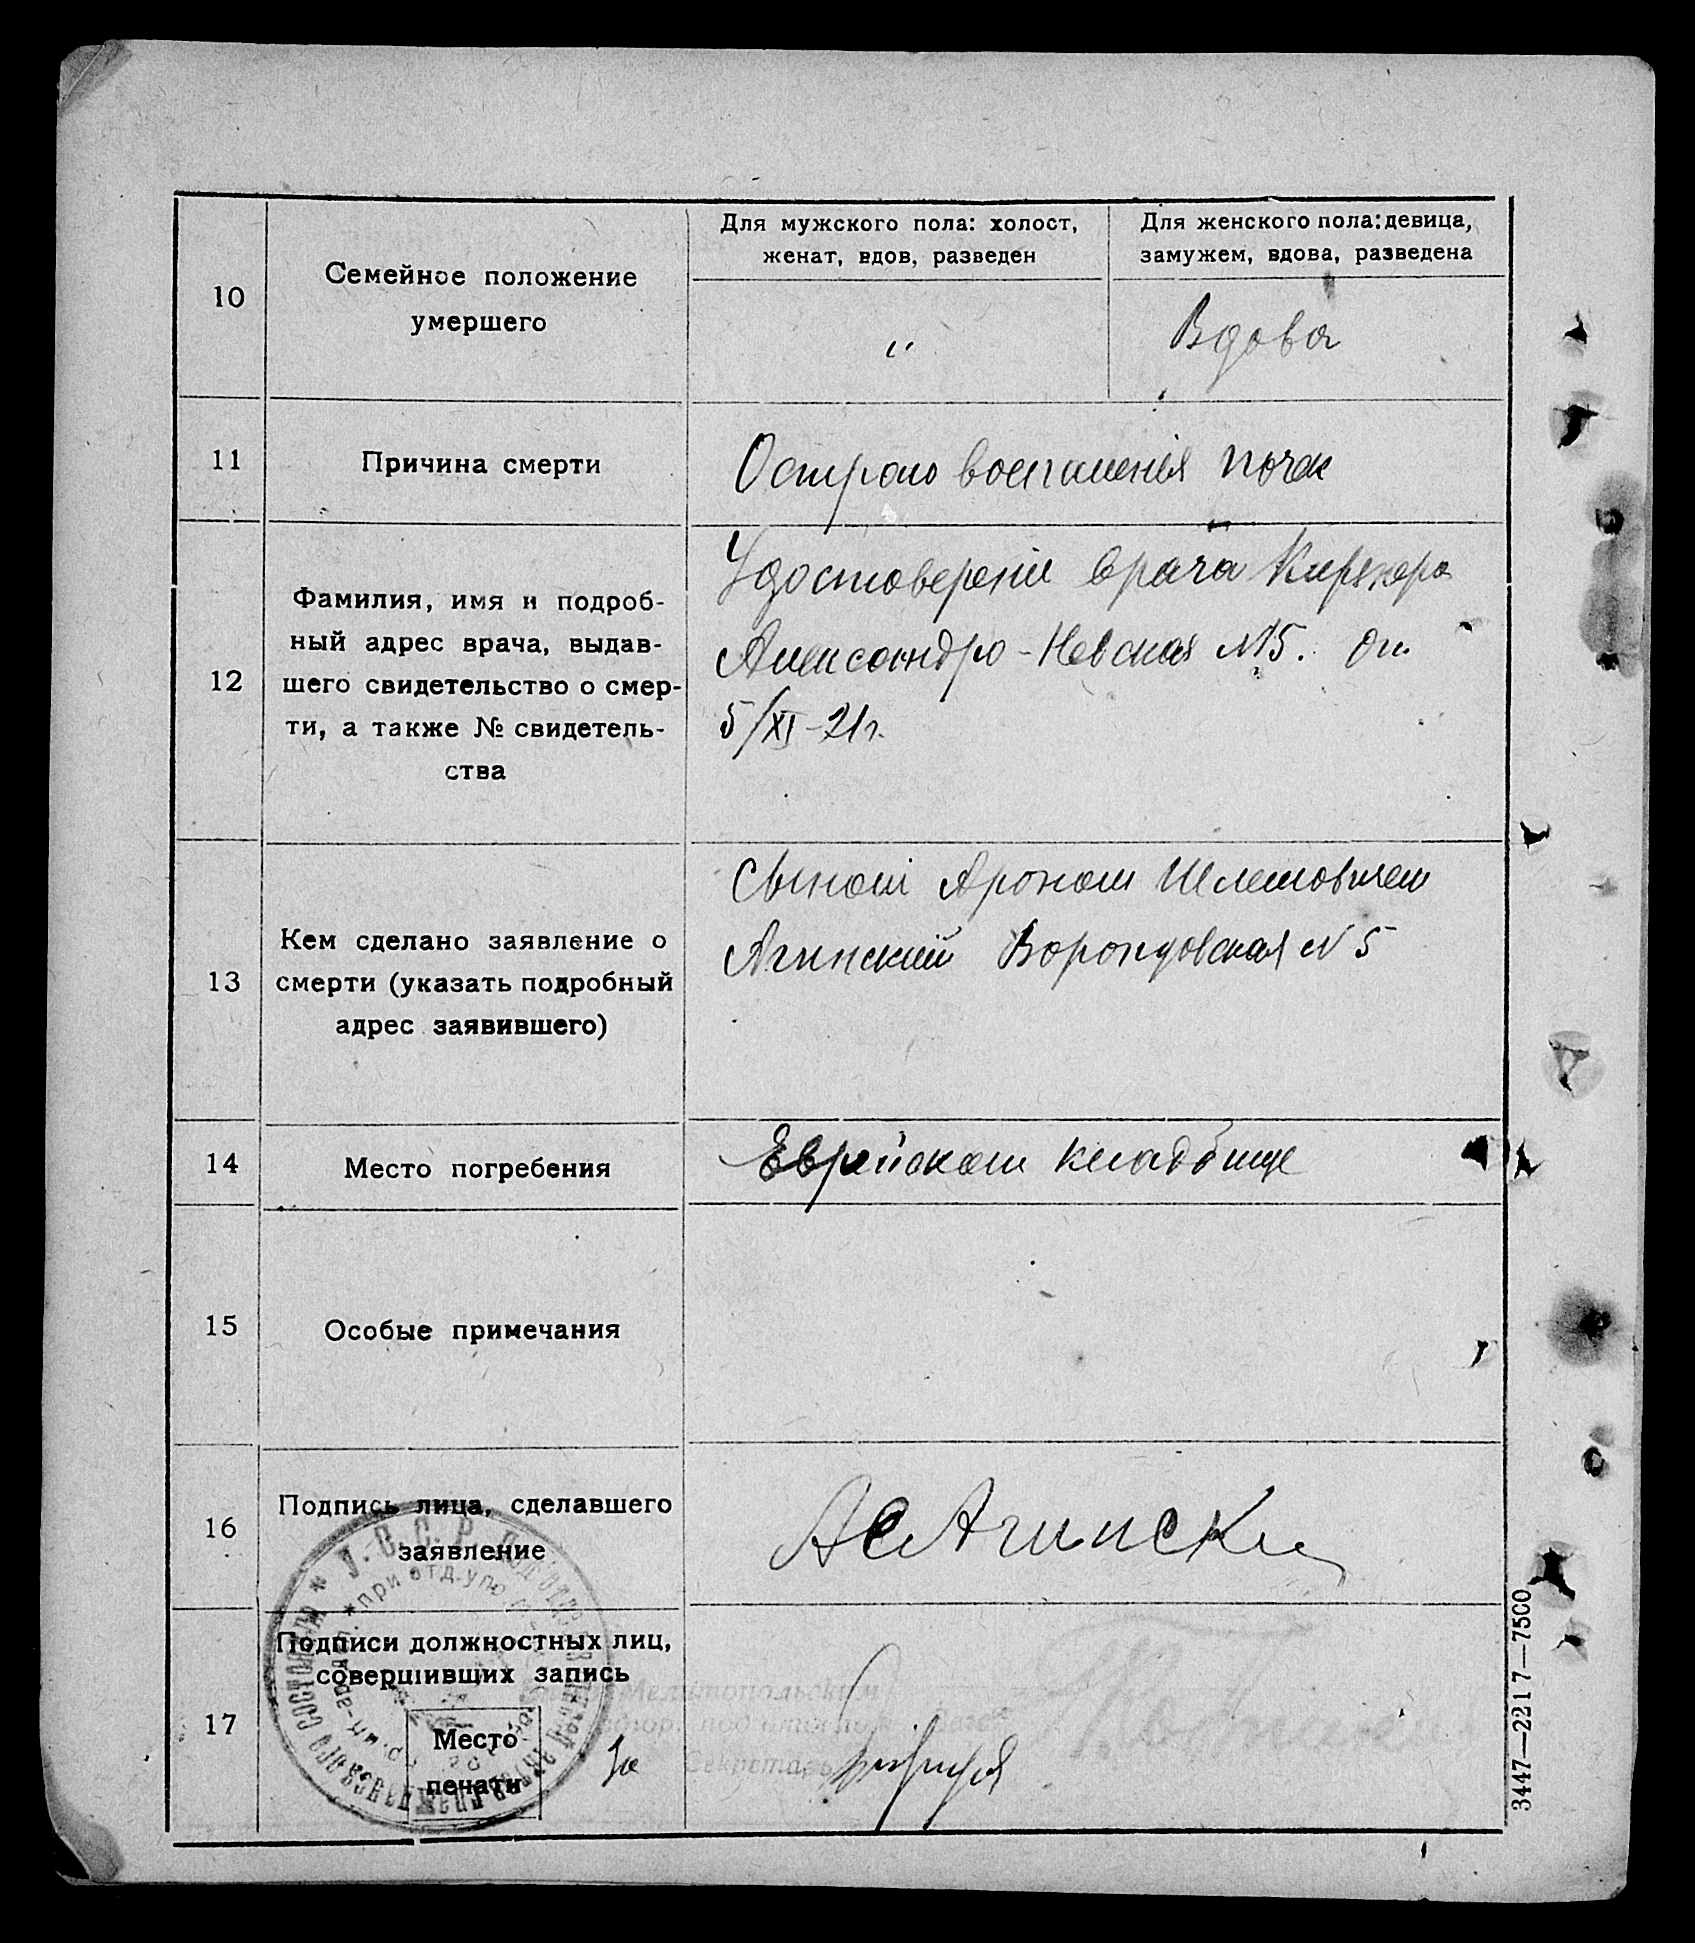 Для мужского пола: холост,
женат, вдов, разведен
Для женского пола: девица,
замужем, вдова, разведена
10
Семейное положение
умершего
"
Вдова
11
Причина смерти
Острого воспаления почек
12
Фамилия, имя и подроб-
ный адрес врача, выдав-
шего свидетельство о смер-
ти, а также № свидетель-
ства
Удостоверение врача
Александро-Невская №5. от
5/XI-21г.
13
Кем сделано заявление о
смерти (указать подробный
адрес заявившего)
Сыном Ароном Шлемовичем
Агинский Воронцовская N 5
14
Место погребения
Еврейском кладбище
15
Особые примечания
16
Подпись лица, сделавшего
заявление
АСАгински
17
Подписи должностных лиц,
совершивших запись
Место
печати
За
Мелитопольским
Секретарь
У.С.С.Р.
при отд. упр.
3447—2217—7500